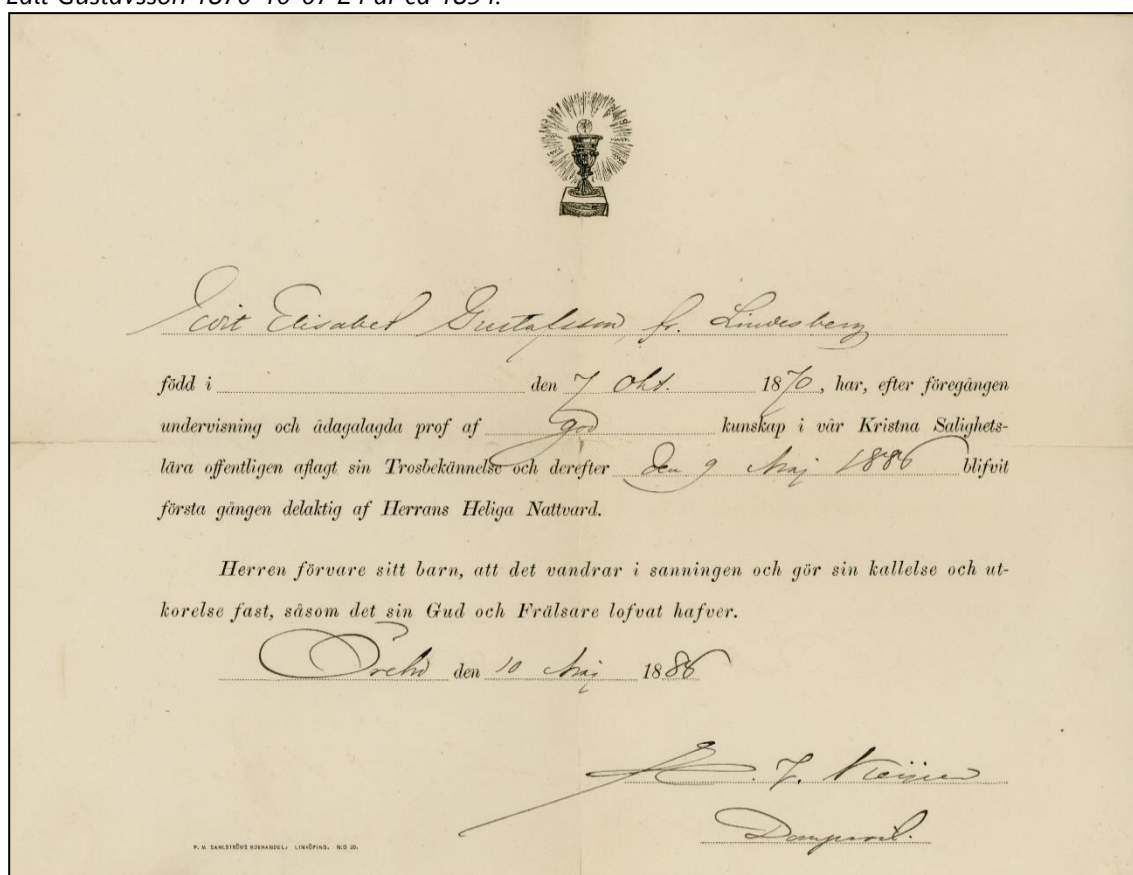 Edit Gustavsson 1870-10-07 24 år ca 1894.
Edit Elisabet Gustafsson, fr. Lindesberg
född i den 7 Okt. 1870, har, efter föregången
undervisning och ådagalagda prof af god kunskap i vår Kristna Salighets-
lära offentligen aflagt sin Trosbekännelse och derefter den 9 Maj 1886 blifvit
första gången delaktig af Herrans Heliga Nattvard.
Herren förvare sitt barn, att det vandrar i sanningen och gör sin kallelse och ut-
korelse fast, såsom det sin Gud och Frälsare lofvat hafver.
Örebro den 10 Maj 1886
J.
P. M. SAHLSTRÖMS BOKHANDEL; LINKÖPING. N:O 20.